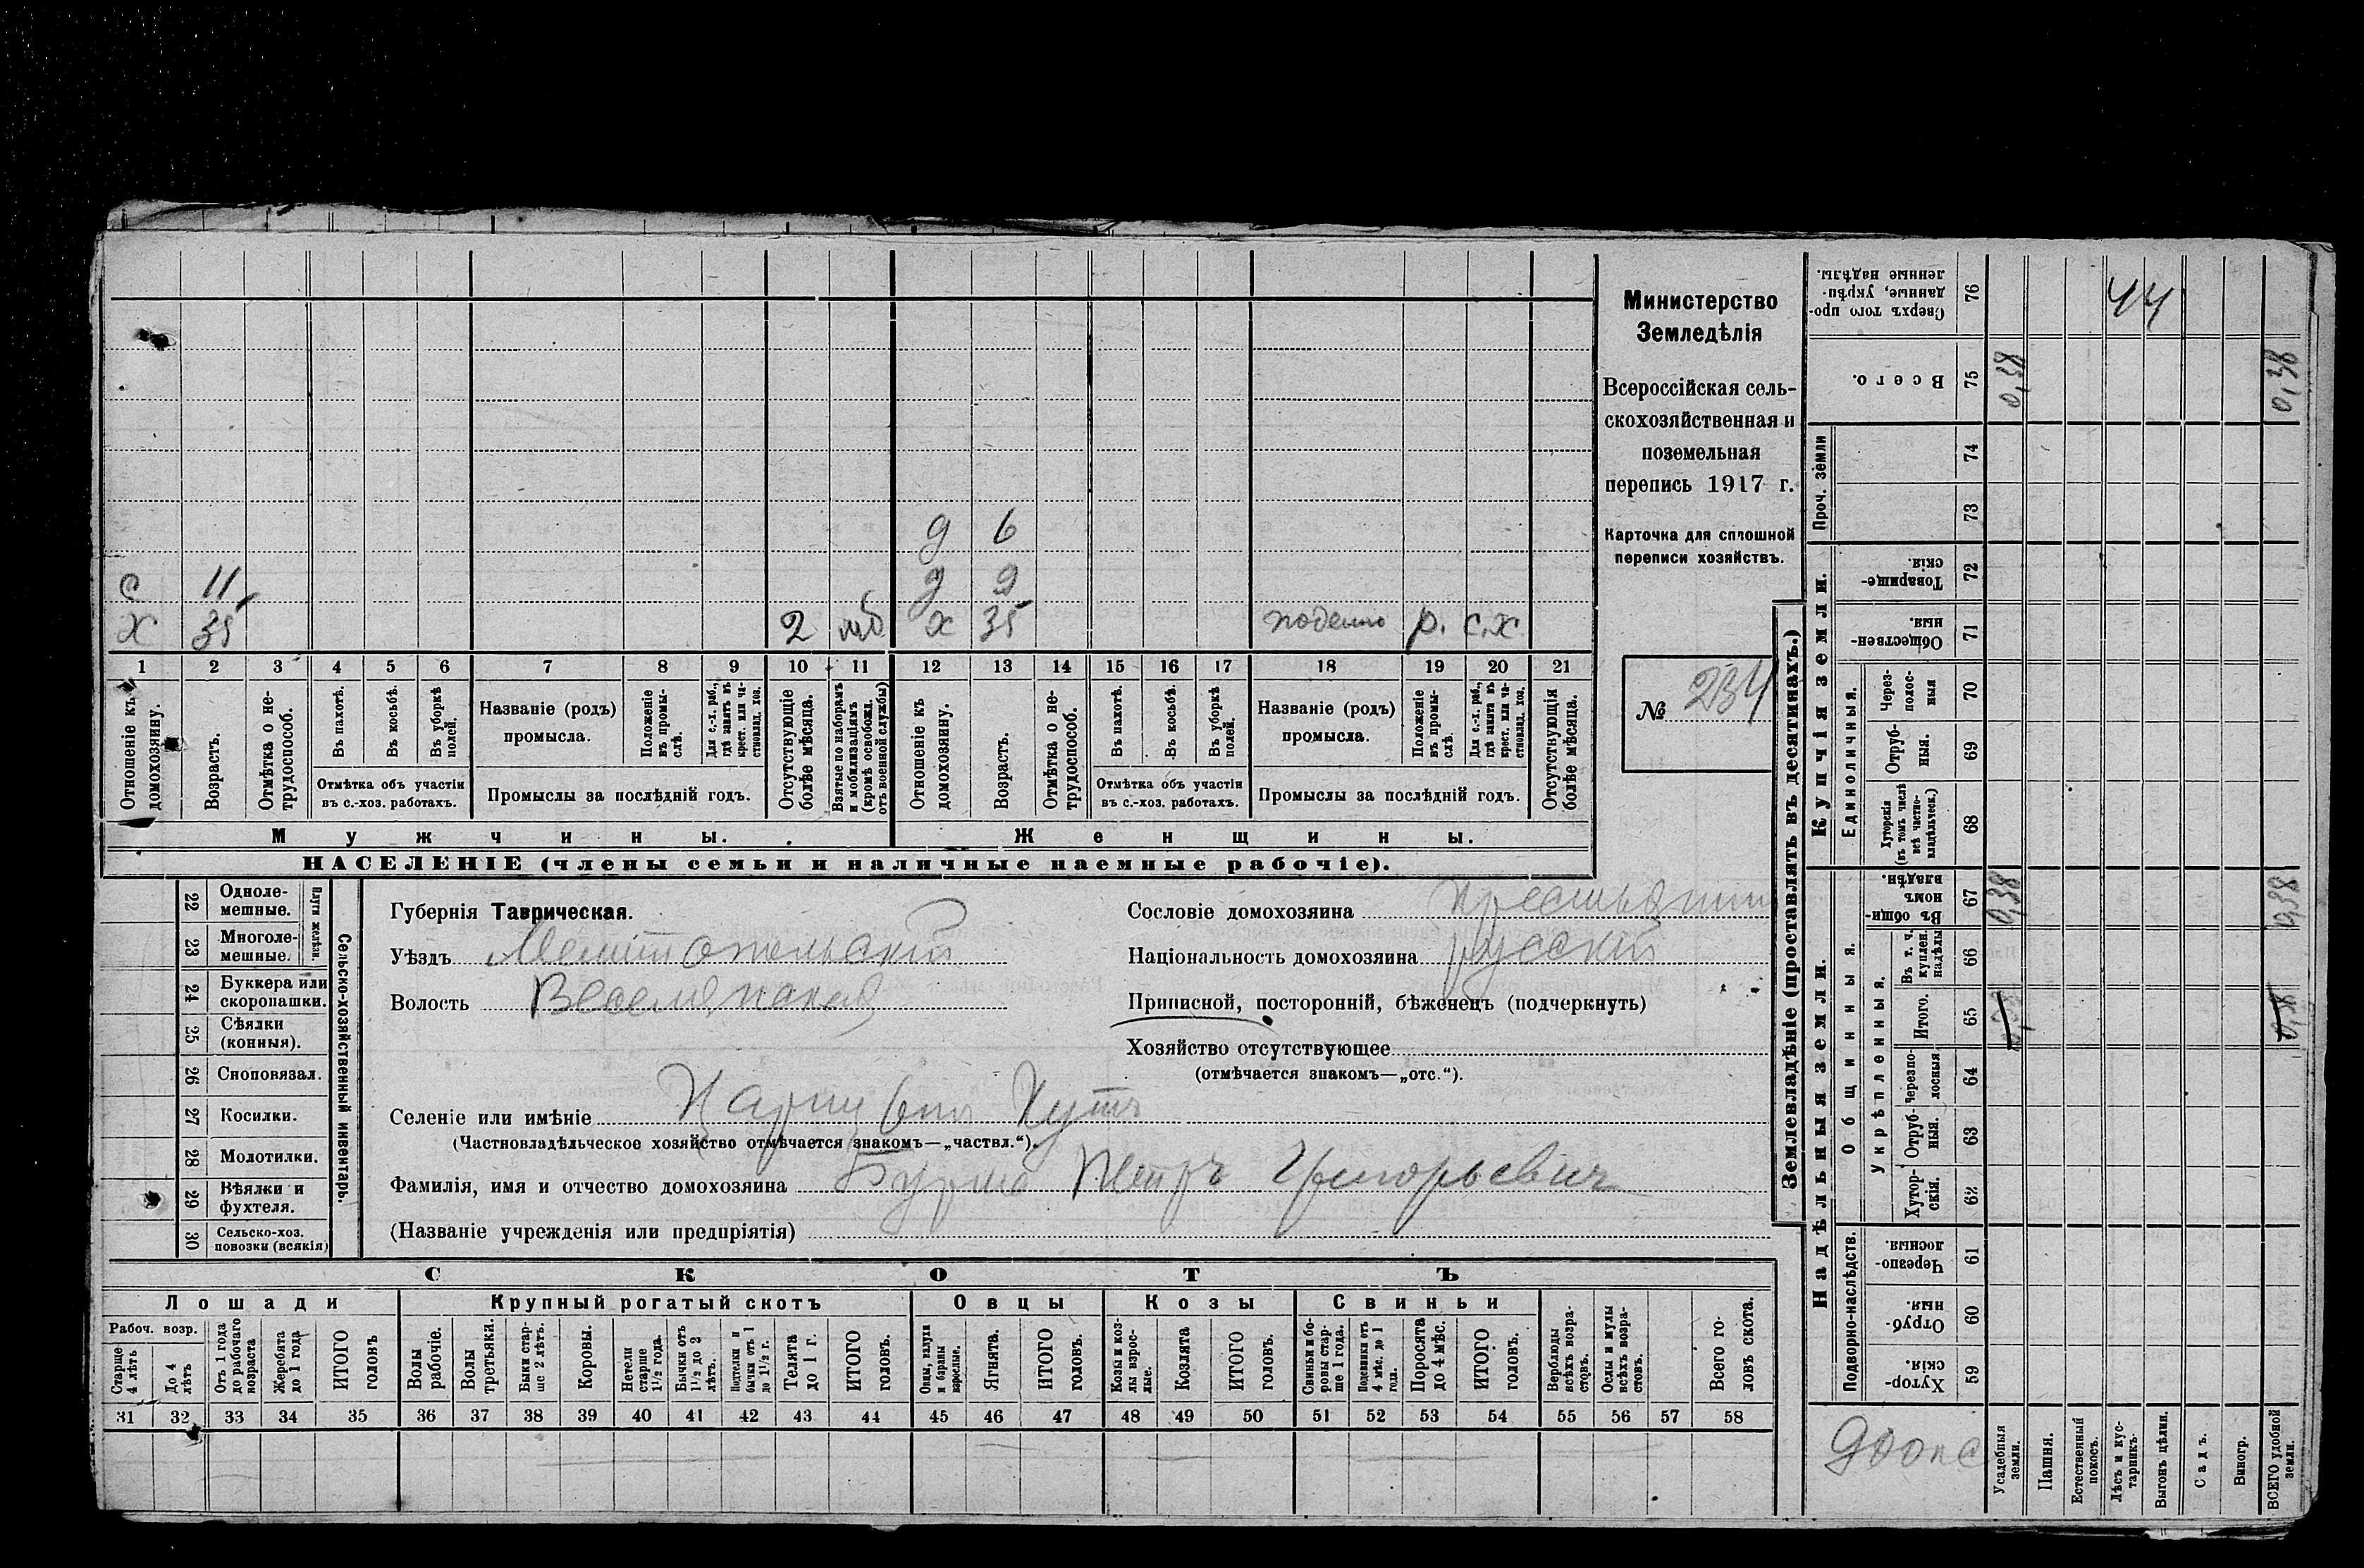 с 11 д 6
д 9
х 35 2 моб х 35 поденно р. с.х.
1 2 3 4 5 6 7 8 9 10 11 12 13 14 15 16 17 18 19 20 21
Отношеніе къ домохозяину.
Возрастъ.
Отмѣтка о нетрудоспособ.
Въ пахотѣ.
Въ косьбѣ.
Въ уборкѣ полей.
Отмѣтка объ участіи
въ с.-хоз. работахъ.
Названіе (родъ)
промысла.
Положеніе въ промыслѣ.
Для с.-х. раб., гдѣ занятъ въ крест. или частновлад. хоз.
Промыслы за послѣдній годъ.
Отсутствующіе болѣе мѣсяца.
Взятые по наборамъ и мобилизаціямъ (кромѣ освобожд. отъ военной службы)
Отношеніе къ домохозяину.
Возрастъ.
Отмѣтка о нетрудоспособ.
Въ пахотѣ.
Въ косьбѣ.
Въ уборкѣ полей.
Отмѣтка объ участіи
въ с.-хоз. работахъ.
Названіе (родъ)
промысла.
Положеніе въ промыслѣ.
Для с.-х. раб., гдѣ занята въ крест. или частновлад. хоз.
Промыслы за послѣдній годъ.
Отсутствующія болѣе мѣсяца.
Мужчины. Женщины.
НАСЕЛЕНІЕ (члены семьи и наличные наемные рабочіе).
Министерство
Земледѣлія
Всероссійская сель-
скохозяйственная и
поземельная
перепись 1917 г.
Карточка для сплошной
переписи хозяйствъ.
№ 234
22 Одноле-
мешные.
23 Многоле-
мешные.
Плуги желѣзн.
24 Буккера или
скоропашки.
25 Сѣялки
(конныя).
26 Сноповязал.
27 Косилки.
28 Молотилки.
29 Вѣялки и
фухтеля.
30 Сельско-хоз.
повозки (всякія)
Сельско-хозяйственный инвентарь.
Губернія Таврическая.
Уѣздъ Мелитопольскій
Волость Веселянская
Сословіе домохозяина крестьянин
Національность домохозяина русскій
Приписной, посторонній, бѣженецъ (подчеркнуть)
Хозяйство отсутствующее
(отмѣчается знакомъ—„отс.“).
Селеніе или имѣніе
(Частновладѣльческое хозяйство отмѣчается знакомъ—„частвл.“).
Фамилія, имя и отчество домохозяина Бурма Петръ Григорьевич
(Названіе учрежденія или предпріятія)
СКОТЪ
Лошади Крупный рогатый скотъ Овцы Козы Свиньи
Рабоч. возр.
Старше 4 лѣтъ
До 4 лѣтъ
Отъ 1 года до рабочаго возраста
Жеребята до 1 года
ИТОГО головъ
Волы рабочіе.
Волы третьяки.
Быки старше 2 лѣтъ.
Коровы.
Нетели старше 1½ года.
Бычки отъ 1½ до 2 лѣтъ.
Подтелки и бычки отъ 1 до 1½ г.
Телята до 1 г.
ИТОГО головъ.
Овцы, валухи и бараны взрослые.
Ягнята.
ИТОГО головъ.
Козы и козлы взрослые.
Козлята
ИТОГО головъ.
Свиньи и боровы старше 1 года.
Подсвинки отъ 4 мѣс. до 1 года.
Поросята до 4 мѣс.
ИТОГО головъ.
Верблюды всѣхъ возрастовъ.
Ослы и мулы всѣхъ возрастовъ.
Всего головъ скота.
31 32 33 34 35 36 37 38 39 40 41 42 43 44 45 46 47 48 49 50 51 52 53 54 55 56 57 58
Землевладѣніе (проставлять въ десятинахъ.)
Надѣльныя земли. Купчія земли.
Подворно-наслѣдств.
Общинныя.
Укрѣпленныя.
Единоличныя.
Проч. земли
76 Сверхъ того проданные, укрѣпленные надѣлы. 44
75 Всего. 0,38 0,38
74
73
72 Товарищескія.
71 Общественныя.
70 Черезполосныя
69 Отрубныя.
68 Хуторскія (въ томъ числѣ всѣ частновладѣльческ.)
67 Въ общинномъ владѣн. 0,38 0,38
66 Въ т. ч. куплен. надѣлы
65 Итого. 0,38 0,38
64 Черезполосныя
63 Отрубныя.
62 Хуторскія.
61 Черезполосныя.
60 Отрубныя.
59 Хуторскія.
Усадебныя земли.
Пашня.
Естественный покосъ.
Лѣсъ и кустарникъ.
Выгонъ цѣлин.
Садъ.
Виногр.
ВСЕГО удобной земли.